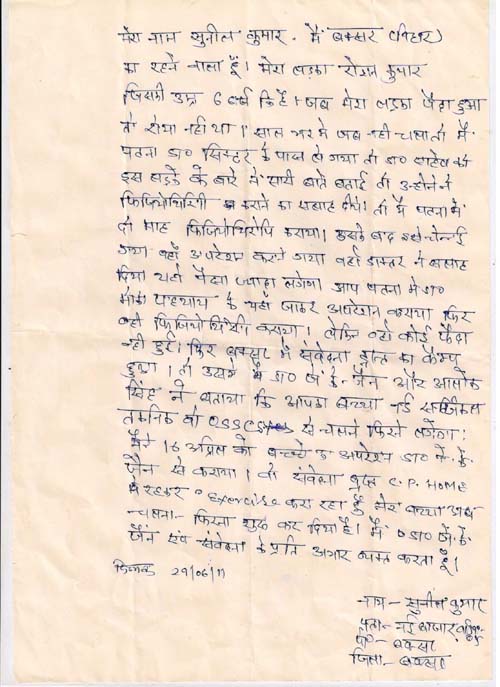 मेरा नाम सुनील कुमार. मैं बक्सर (बिहार)
का रहने वाला हूँ। मेरा लड़का रोशन कुमार
जिसकी उम्र 6 वर्ष कि है। जब मेरा लड़का पैदा हुआ
तो रोया नही था। साल भर मे जब नही चला तो मैं
पटना डा० सिस्टर के पास ले गया तो डा० साहेब को
इस लड़के के बारे में सारी बाते बताई तो उन्होंने ने
फिजियोथिरेपी कराने का सलाह दिये। तो मैं पटना में
दो माह फिजियोथिरोपि कराया। उसके बाद इसे चेन्नई
गया वहाँ अपरेशन कराने गया वहाँ डाक्टर ने सलाह
दिया यहाँ पैसा ज्यादा लगेगा आप पटना मे डा०
के यहाँ जाकर अपरेशन कराया फिर
वही फिजियोथिरेपी कराया। लेकिन वहाँ कोई फैदा
नही हुई। फिर बक्सर में संवेदना ट्रस्ट का कैम्प
हुआ। तो उसमे मैं डा० जे. के. जैन और आलोक
सिंह ने बताया कि आपका बच्चा नई सर्जिकल
तकनिक वो OSSCS से चलने फिरने लगेगा।
मैंने 16 अप्रिल को बच्चे के अपरेशन डा० जे. के.
जैन से कराया। वो संवेदना ट्रस्ट C.P. HOME
मे रहकर Exercise करा रहा हूँ मेरा बच्चा अब
चलना- फिरना शुरू कर दिया है। मैं डा० जे. के.
जैन एवं संवेदना के प्रति अभार व्यक्त करता हूँ।
दिनांक 29/06/11
नाम- सुनील कुमार
पता- नई बाजार
पो०- बक्सर
जिला- बक्सर